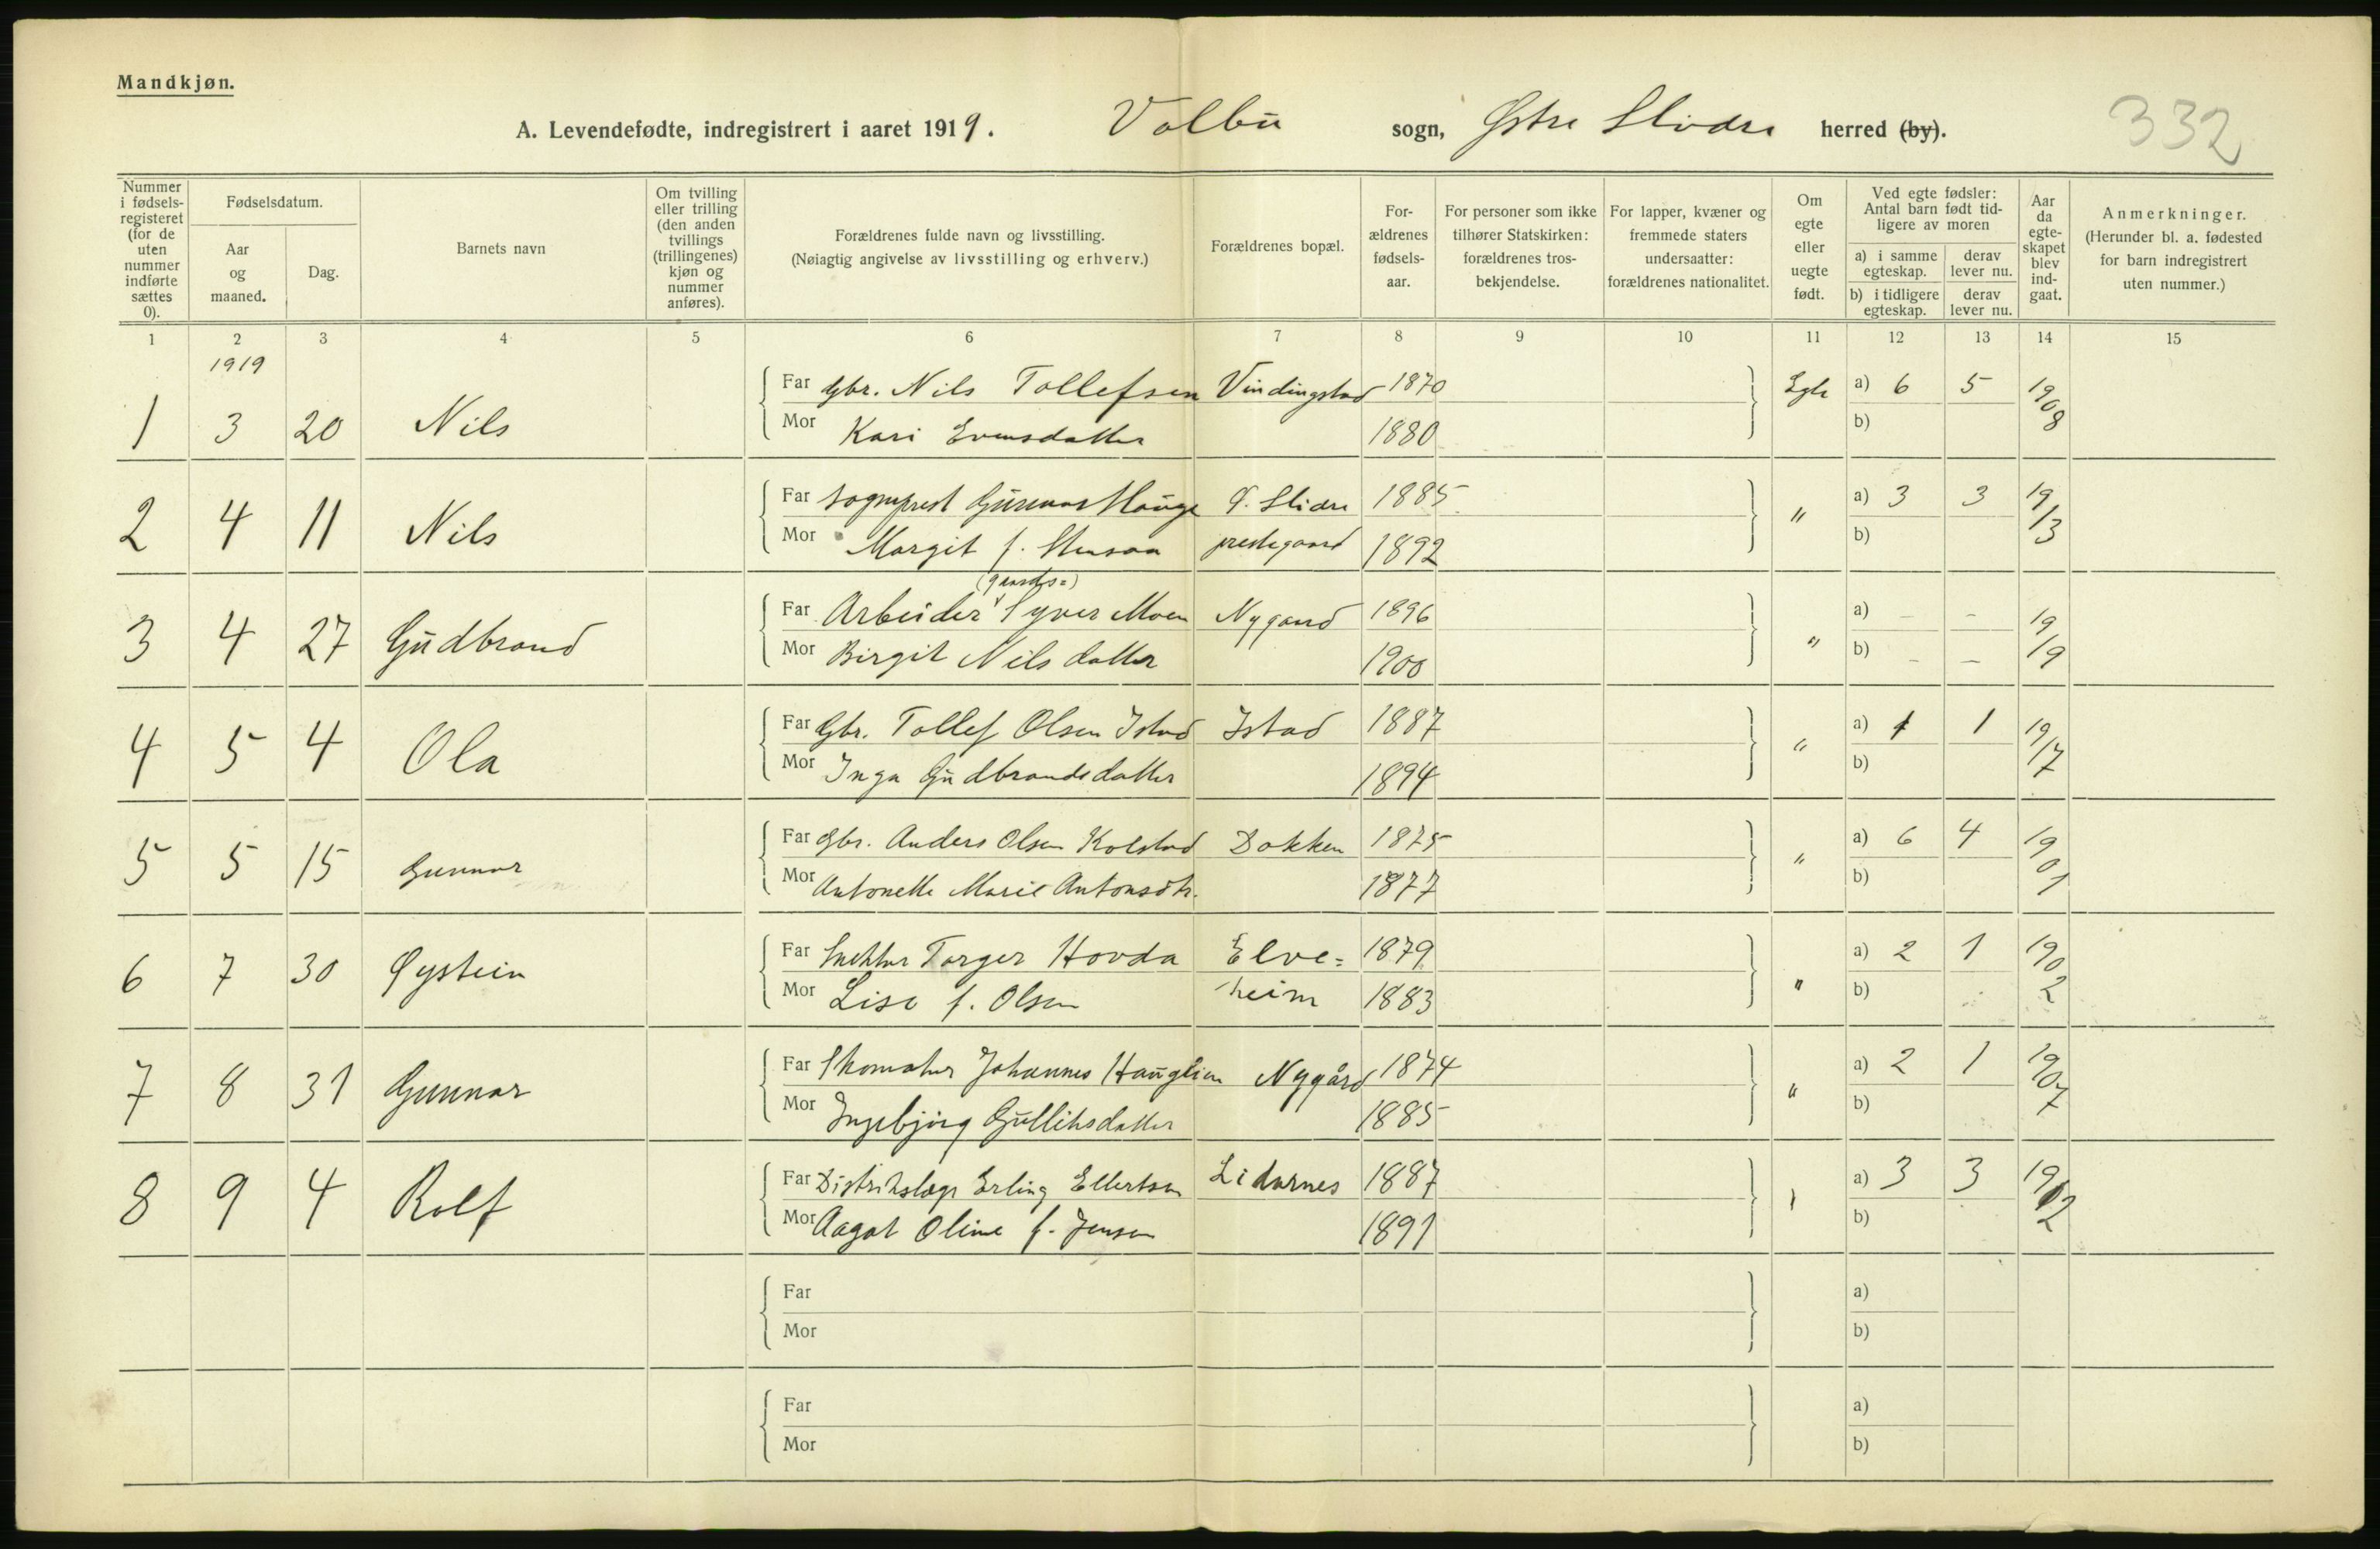 Mandkjøn.
A. Levendefødte, indregistrert i aaret 1919. Volbu sogn, Østre Slidre herred (by). 332
Nummer i fødsels-registeret (for de uten nummer indførte sættes 0).
Fødselsdatum.
Aar og maaned.
Dag.
Barnets navn
Om tvilling eller trilling (den anden tvillings (trillingenes) kjøn og nummer anføres).
Forældrenes fulde navn og livsstilling.
(Nøiagtig angivelse av livsstilling og erhverv.)
Forældrenes bopæl.
For-ældrenes fødsels-aar.
For personer som ikke tilhører Statskirken: forældrenes tros-bekjendelse.
For lapper, kvæner og fremmede staters undersaatter: forældrenes nationalitet.
Om egte eller uegte født.
Ved egte fødsler: Antal barn født tid-ligere av moren
a) i samme egteskap.
derav lever nu.
b) i tidligere egteskap.
derav lever nu.
Aar da egte-skapet blev ind-gaat.
Anmerkninger.
(Herunder bl. a. fødested for barn indregistrert uten nummer.)
1 2 3 4 5 6 7 8 9 10 11 12 13 14 15
1919
1 3 20 Nils Far Gbr. Nils Tollefsen Vindingstad 1870 Egte a) 6 5 1908
Mor Kari Evensdatter 1880 b)
2 4 11 Nils Far Sogneprest Gunnar Hauge Ø. Slidre 1885 " a) 3 3 19/13
Mor Margit f. Stensaa prestegaard 1892 b)
(gaards=)
3 4 27 Gudbrand Far Arbeider Syver Moen Nygaard 1896 " a) – – 19/19
Mor Birgit Nilsdatter 1900 b) – –
4 5 4 Ola Far Gbr. Tollef Olsen Istad Istad 1887 " a) 1 1 19/17
Mor Inga Gudbrandsdatter 1894 b)
5 5 15 Gunnar Far Gbr. Anders Olsen Kolstad Dokken 1875 " a) 6 4 1901
Mor Antonette Marie Antonsdtr. 1877 b)
6 7 30 Øystein Far Snekker Torger Hovda Elve= 1879 " a) 2 1 1902
Mor Lise f. Olsen heim 1883 b)
7 8 31 Gunnar Far Skomaker Johannes Hauglien Nygård 1874 " a) 2 1 1907
Mor Ingebjørg Gulliksdatter 1885 b)
8 9 4 Rolf Far Distriktslæge Erling Ellertsen Lidarnes 1887 a) 3 3 1912
Mor Aagot Oline f. Jensen 1891 b)
Far a)
Mor b)
Far a)
Mor b)